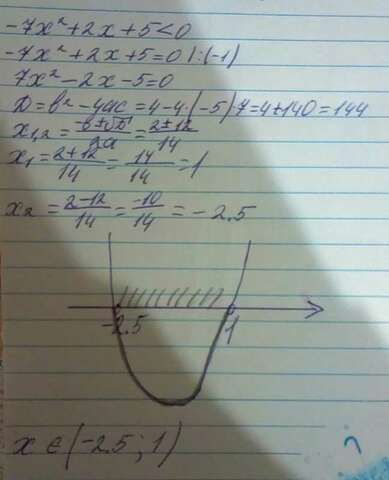 -7x²+2x+5<0
-7x²+2x+5=0 |:(-1)
7x²-2x-5=0
D=b²-4ac=4-4·(-5)·7=4+140=144
x₁,₂=(-b±√D)/2a=(2±12)/14
x₁=(2+12)/14=14/14=1
x₂=(2-12)/14=-10/14=-2.5
-2.5 1
x∈(-2.5;1)